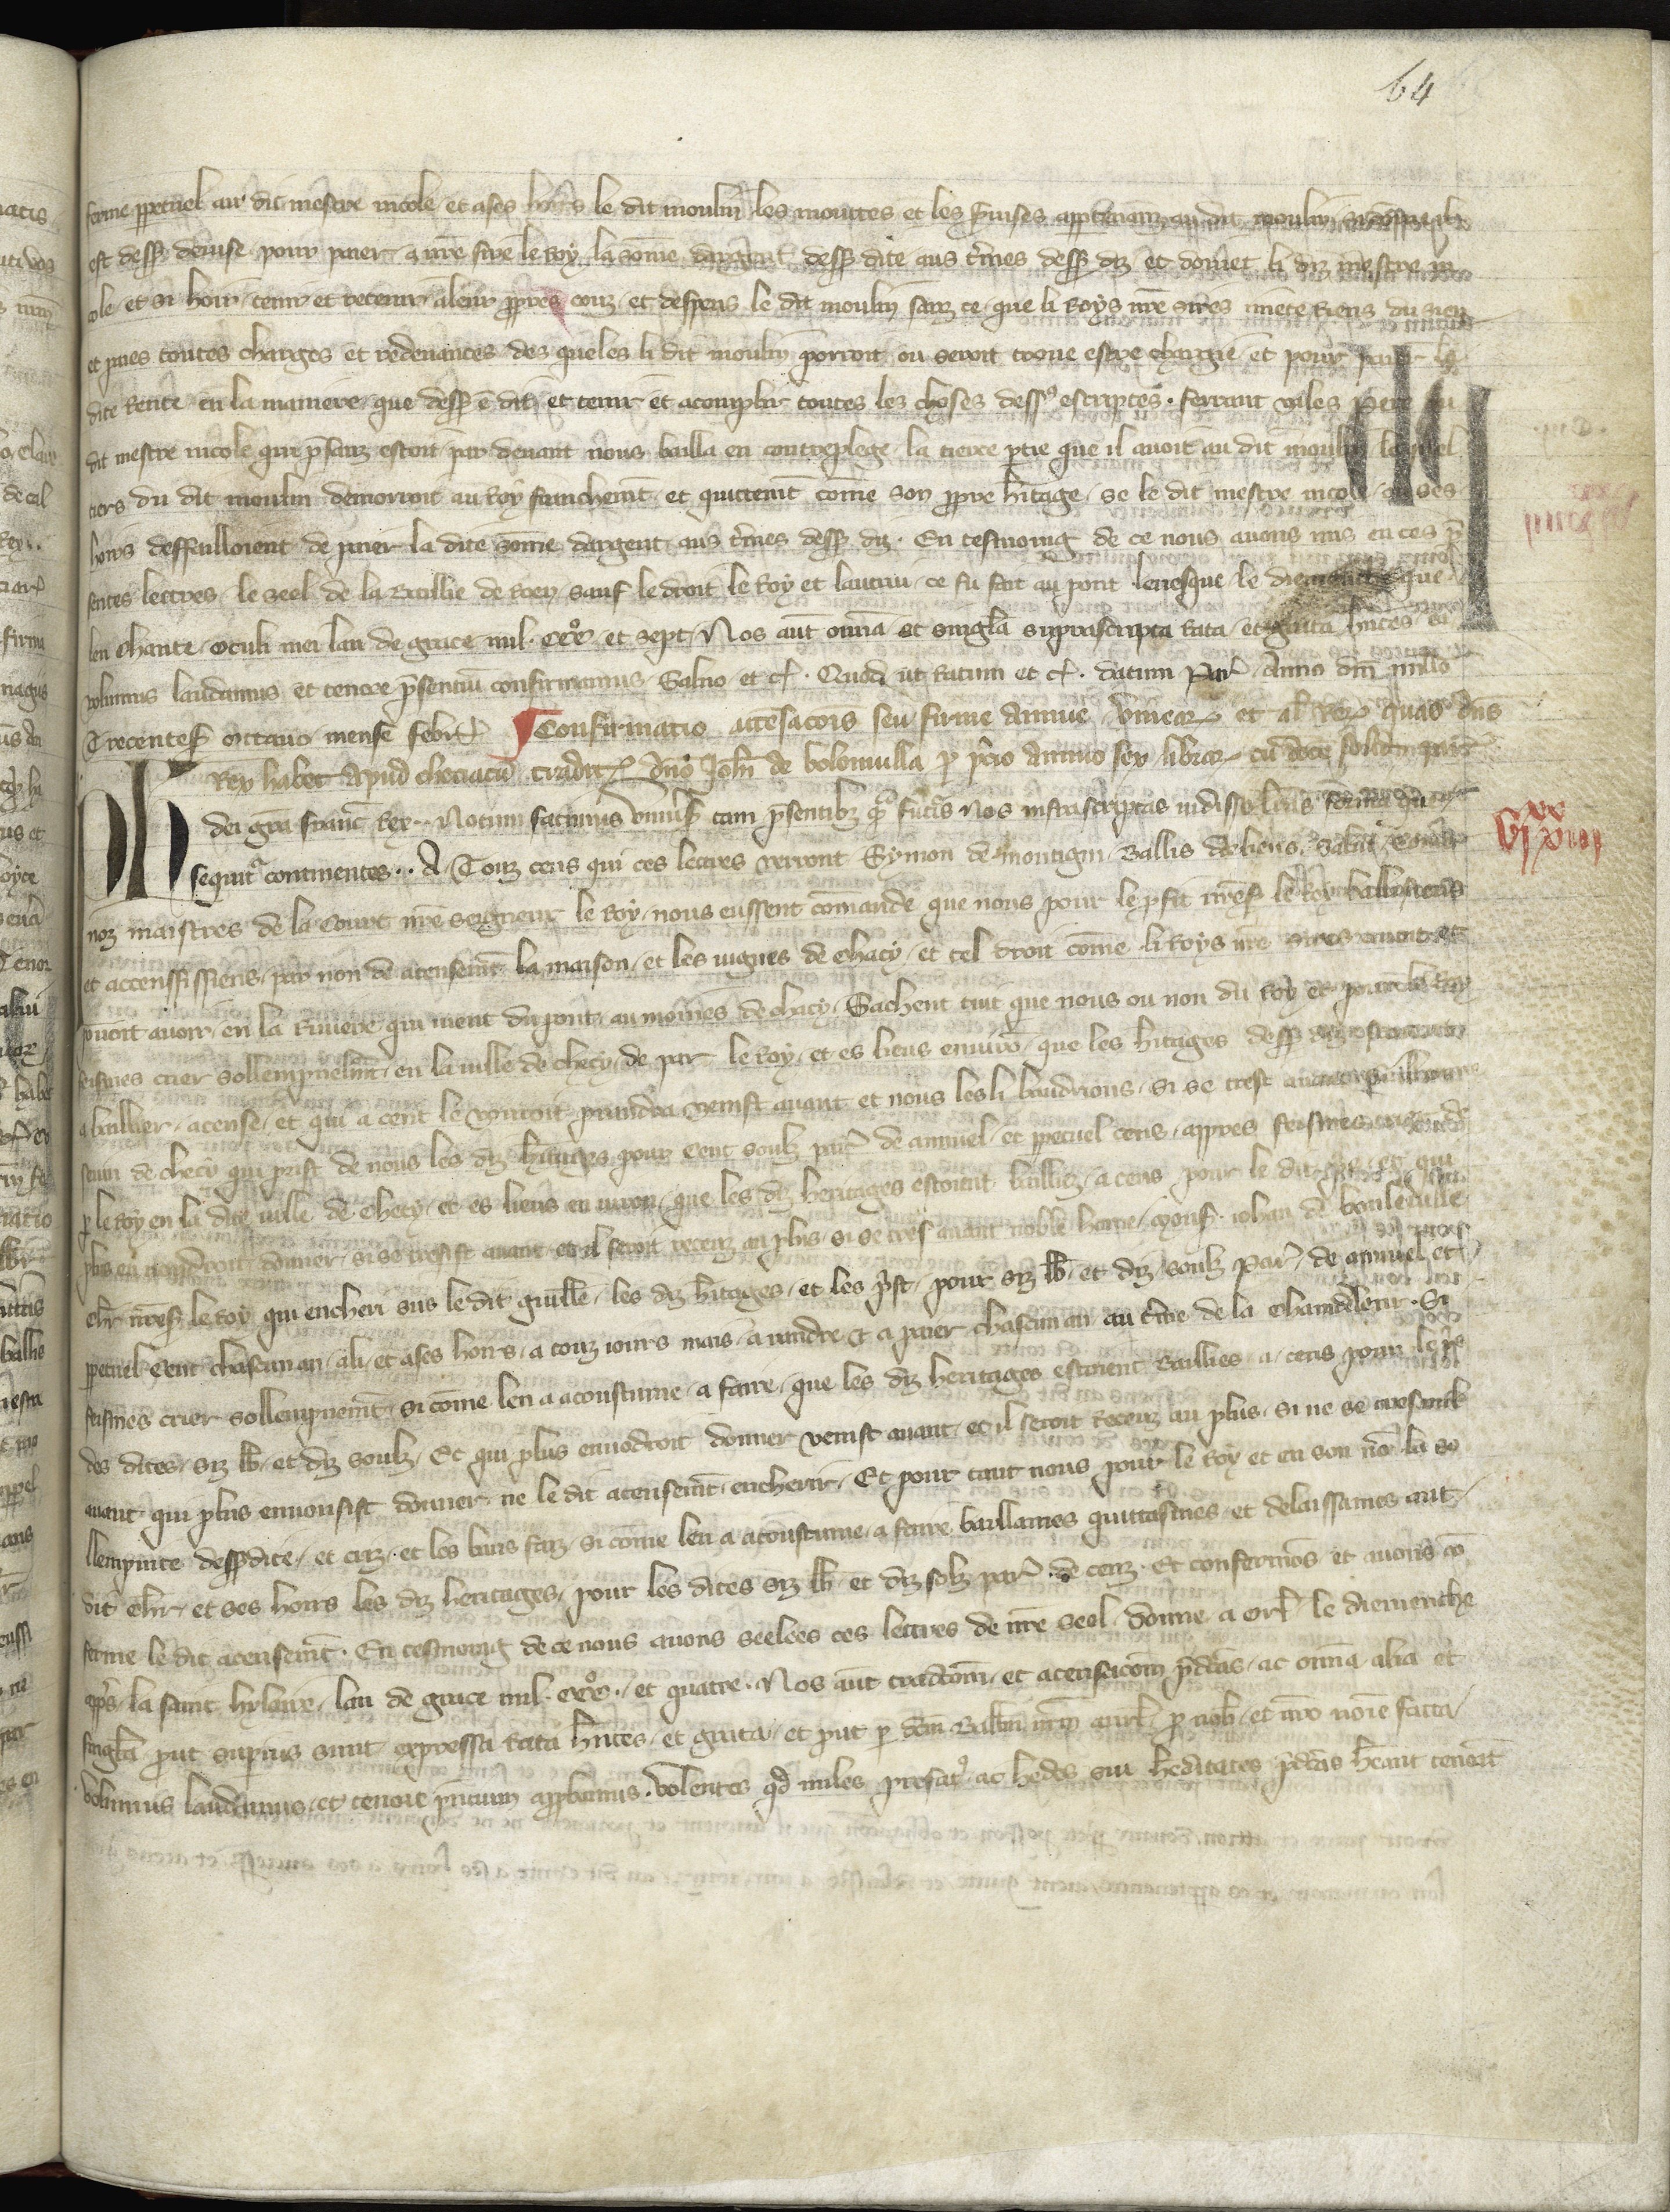 64
ferme ppetuel au dit mestre nicole et a ses hoirs le dit moulin les mouttes et les apptenanz au dit moulin si cōme il
est dess9 deuise pour paier a nr̄e sire le Roy la sōme dargent dess9 dite aus t̄mes dess9 diz et doiuēt li diz mestre ni
cole et si hoir tenir et retenir a leur ppres couz et despens le dit moulin sanz ce que li Roys nr̄e sires i mete Riens du sien
et paies toutes charges et redeuances des queles li dit moulin porroit ou seroit troue estre chargie et pour paier la
dite Rente en la maniere que dess9 ē dit et tenir et acomplir toutes les choses dess9 escriptes . ferrant pere du
dit mestre nicole qui p̄sanz estoit par deuant nous bailla en contreplege la tierce ptie que il auoit au dit moulin le quel
tiers du dit moulin demorroit au Roy franchemt̄ et quittemt̄ cōme son ppre h̄itage se le dit mestre nicole ou ses
hoirs deffailloient de paier la dite sōme dargent aus t̄mes dess9 diz . En tesmoing de ce nous auons mis en ces p̄
sentes lettres le seel de la Baillie de Roen sauf le droit le Roy et lautrui ce fu fait au pont leuesque le diemenche que
len chante Oculi mei lan de grace mil . ccco et sept . Nos aūt om̄ia et singla suprascripta Rata et grata h̄ntes ea
volumus laudamus et tenore p̄sentiū confirmamus Saluo et cꝭ . Quod ut Ratum et cꝭ . datum Par̄ Anno dn̄i mill̄o
Trecentes̄ octauo mense febr̄
Confirmatio accēsacōis seu firme Annue vinear̄ et al Rer̄ quas dn̄s
Rex habet Apud checiacū tradit̄ dn̄o Joh̄i de bolonuilla p p̄cio Annuo sex librar̄ cū decē solid par̄
Ph
dei gr̄a franc̄ Rex .. Notum facimus vniūsis tam p̄sentibz q̄ fut̄is Nos infrascriptas uidisse lr̄as formā que
sequit̄ continentes .. A Touz ceus qui ces lettres verront Symon de montigni Baillis dorliens Salut Cōme
noz maistres de la Court nr̄e seigneur le Roy nous eussent cōmande que nous pour le pfit nr̄es̄ le Roy baillissiens
et accenssissiens par non de acensemt̄ la maison et les uignes de chacy et tel droit cōme li Roys nr̄e sires auoit et
pouoit auoir en la Riuiere qui uient du pont au moines de chacy . Sachent tuit que nous ou non du Roy et pour le Roy
feismes crier sollempnelmt̄ en la uille de checy de par le Roy et es lieus enuirō que les h̄itages dess9 diz estoient
a baillier a cense et qui a cent le vorroit prandre venist auant et nous les li baudrions . si se trest auant
de checy qui prist de nous les diz h̄itages pour Cent soulz par̄ de annuel et ppetuel cens . appres feismes crier
p le Roy en la dite uille de checy et es lieus en uiron que les diz heritages estoient bailliez a cens pour le dit pris et qui
plus en uoudroit donner si se tresist auant et il seroit receuz au plus . si se trest auant noble home mons̄ iohan de bouleuille
ch̄r nr̄es̄ le Roy qui encheri sus le dit guille les diz h̄itages et les p̄st pour siz lb̄ et diz soulz par̄ de annuel et
ppetuel cent chascun an a li et a ses hoirs a touz iours mais a randre et a paier chascun an au t̄me de la chandeleur . Si
feismes crier sollempnemt̄ si cōme len a acoustume a faire que les diz heritages estoient Baillies a cens pour le p̄s
des dites siz lb̄ et diz soulz Et qui plus en uodroit donner venist auant et il seroit Receuz au plus . si ne se trest nul
auant qui plus en uousist donner ne le dit acensemt̄ encherir . Et pour tant nous pour le Roy et en son nō la so
llempnite dess9 dite et criz et les bans faiz si cōme len a acoustume a faire baillames quittasmes et delaissames aut
dit ch̄r et ses hoirs les diz heritages pour les dites siz lb̄ et diz solz par̄ . de cenz . Et confermōs et auons cō
ferme le dit acensemt̄ . En tesmoing de ce nous auons seelees ces lettres de nr̄e seel donne a orl̄ le diemenche
ap̄s la saint hylaire lan de grace mil . ccco . et quatre . Nos aūt tradiciōm et acensacōm p̄dcās ac om̄ia alia et
singla prout superius sunt expressa Rata h̄ntes et grata et put p dcm̄ Ballm̄ nr̄m aurel̄ p nob̄ et nr̄o nōie facta
volumus laudamus et tenore p̄ntium appbamus . volentes qd miles prefat9 ac hedes sui heditates p̄dcās heant teneāt
VIxx XVIII